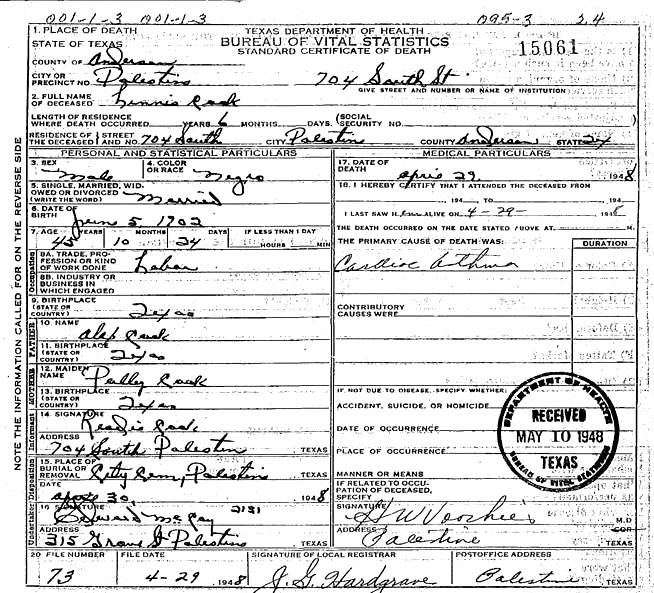 001-1-3 001-1-3 095-3 2.4
TEXAS DEPARTMENT OF HEALTH
BUREAU OF VITAL STATISTICS
STANDARD CERTIFICATE OF DEATH
15061
1. PLACE OF DEATH
STATE OF TEXAS
COUNTY OF Anderson
CITY OR PRECINCT NO. Palestine 704 South St
GIVE STREET AND NUMBER OR NAME OF INSTITUTION
2. FULL NAME OF DECEASED Cook
LENGTH OF RESIDENCE WHERE DEATH OCCURRED YEARS 6 MONTHS DAYS. (SOCIAL SECURITY NO.
RESIDENCE OF THE DECEASED STREET AND NO. 704 South CITY Palestine COUNTY Anderson STATE
PERSONAL AND STATISTICAL PARTICULARS
3. SEX Male
4. COLOR OR RACE Negro
5. SINGLE, MARRIED, WIDOWED OR DIVORCED (WRITE THE WORD) Married
6. DATE OF BIRTH 5 1902
7. AGE 45 YEARS 10 MONTHS 24 DAYS
IF LESS THAN 1 DAY HOURS MIN
8A. TRADE, PROFESSION OR KIND OF WORK DONE Labor
8B. INDUSTRY OR BUSINESS IN WHICH ENGAGED
9. BIRTHPLACE (STATE OR COUNTRY) Texas
10. NAME Cook
11. BIRTHPLACE (STATE OR COUNTRY) Texas
12. MAIDEN NAME Cook
13. BIRTHPLACE (STATE OR COUNTRY) Texas
14. SIGNATURE Cook
ADDRESS 704 South Palestine TEXAS
15. PLACE OF BURIAL OR REMOVAL City Cem, Palestine TEXAS
DATE 30, 1948
16. SIGNATURE 2131
ADDRESS 315 Palestine TEXAS
MEDICAL PARTICULARS
17. DATE OF DEATH 29, 1948
18. I HEREBY CERTIFY THAT I ATTENDED THE DECEASED FROM
194 TO 194
I LAST SAW H ALIVE ON 4-29- 1948
THE DEATH OCCURRED ON THE DATE STATED ABOVE AT M.
THE PRIMARY CAUSE OF DEATH WAS:
DURATION
Cardiac asthma
CONTRIBUTORY CAUSES WERE
IF NOT DUE TO DISEASE, SPECIFY WHETHER
ACCIDENT, SUICIDE, OR HOMICIDE
DATE OF OCCURRENCE
PLACE OF OCCURRENCE
MANNER OR MEANS
IF RELATED TO OCCUPATION OF DECEASED, SPECIFY
SIGNATURE M.D
ADDRESS Palestine TEXAS
DEPARTMENT OF HEALTH
RECEIVED
MAY 10 1948
TEXAS
BUREAU OF VITAL STATISTICS
20 FILE NUMBER
73
FILE DATE
4-29 1948
SIGNATURE OF LOCAL REGISTRAR
J. G. Hardgrave
POSTOFFICE ADDRESS
Palestine TEXAS
NOTE THE INFORMATION CALLED FOR ON THE REVERSE SIDE
Occupation
FATHER
MOTHER
Informant
Disposition
Undertaker